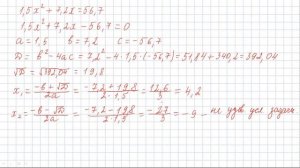 1,5x² + 7,2x = 56,7
1,5x² + 7,2x - 56,7 = 0
a = 1,5 b = 7,2 c = -56,7
D = b² - 4ac = 7,2² - 4·1,5·(-56,7) = 51,84 + 340,2 = 392,04
√D = √392,04 = 19,8
x₁ = (-b + √D)/2a = (-7,2 + 19,8)/2·1,5 = 12,6/3 = 4,2
x₂ = (-b - √D)/2a = (-7,2 - 19,8)/2·1,5 = -27/3 = -9 – не удв. усл. задачи